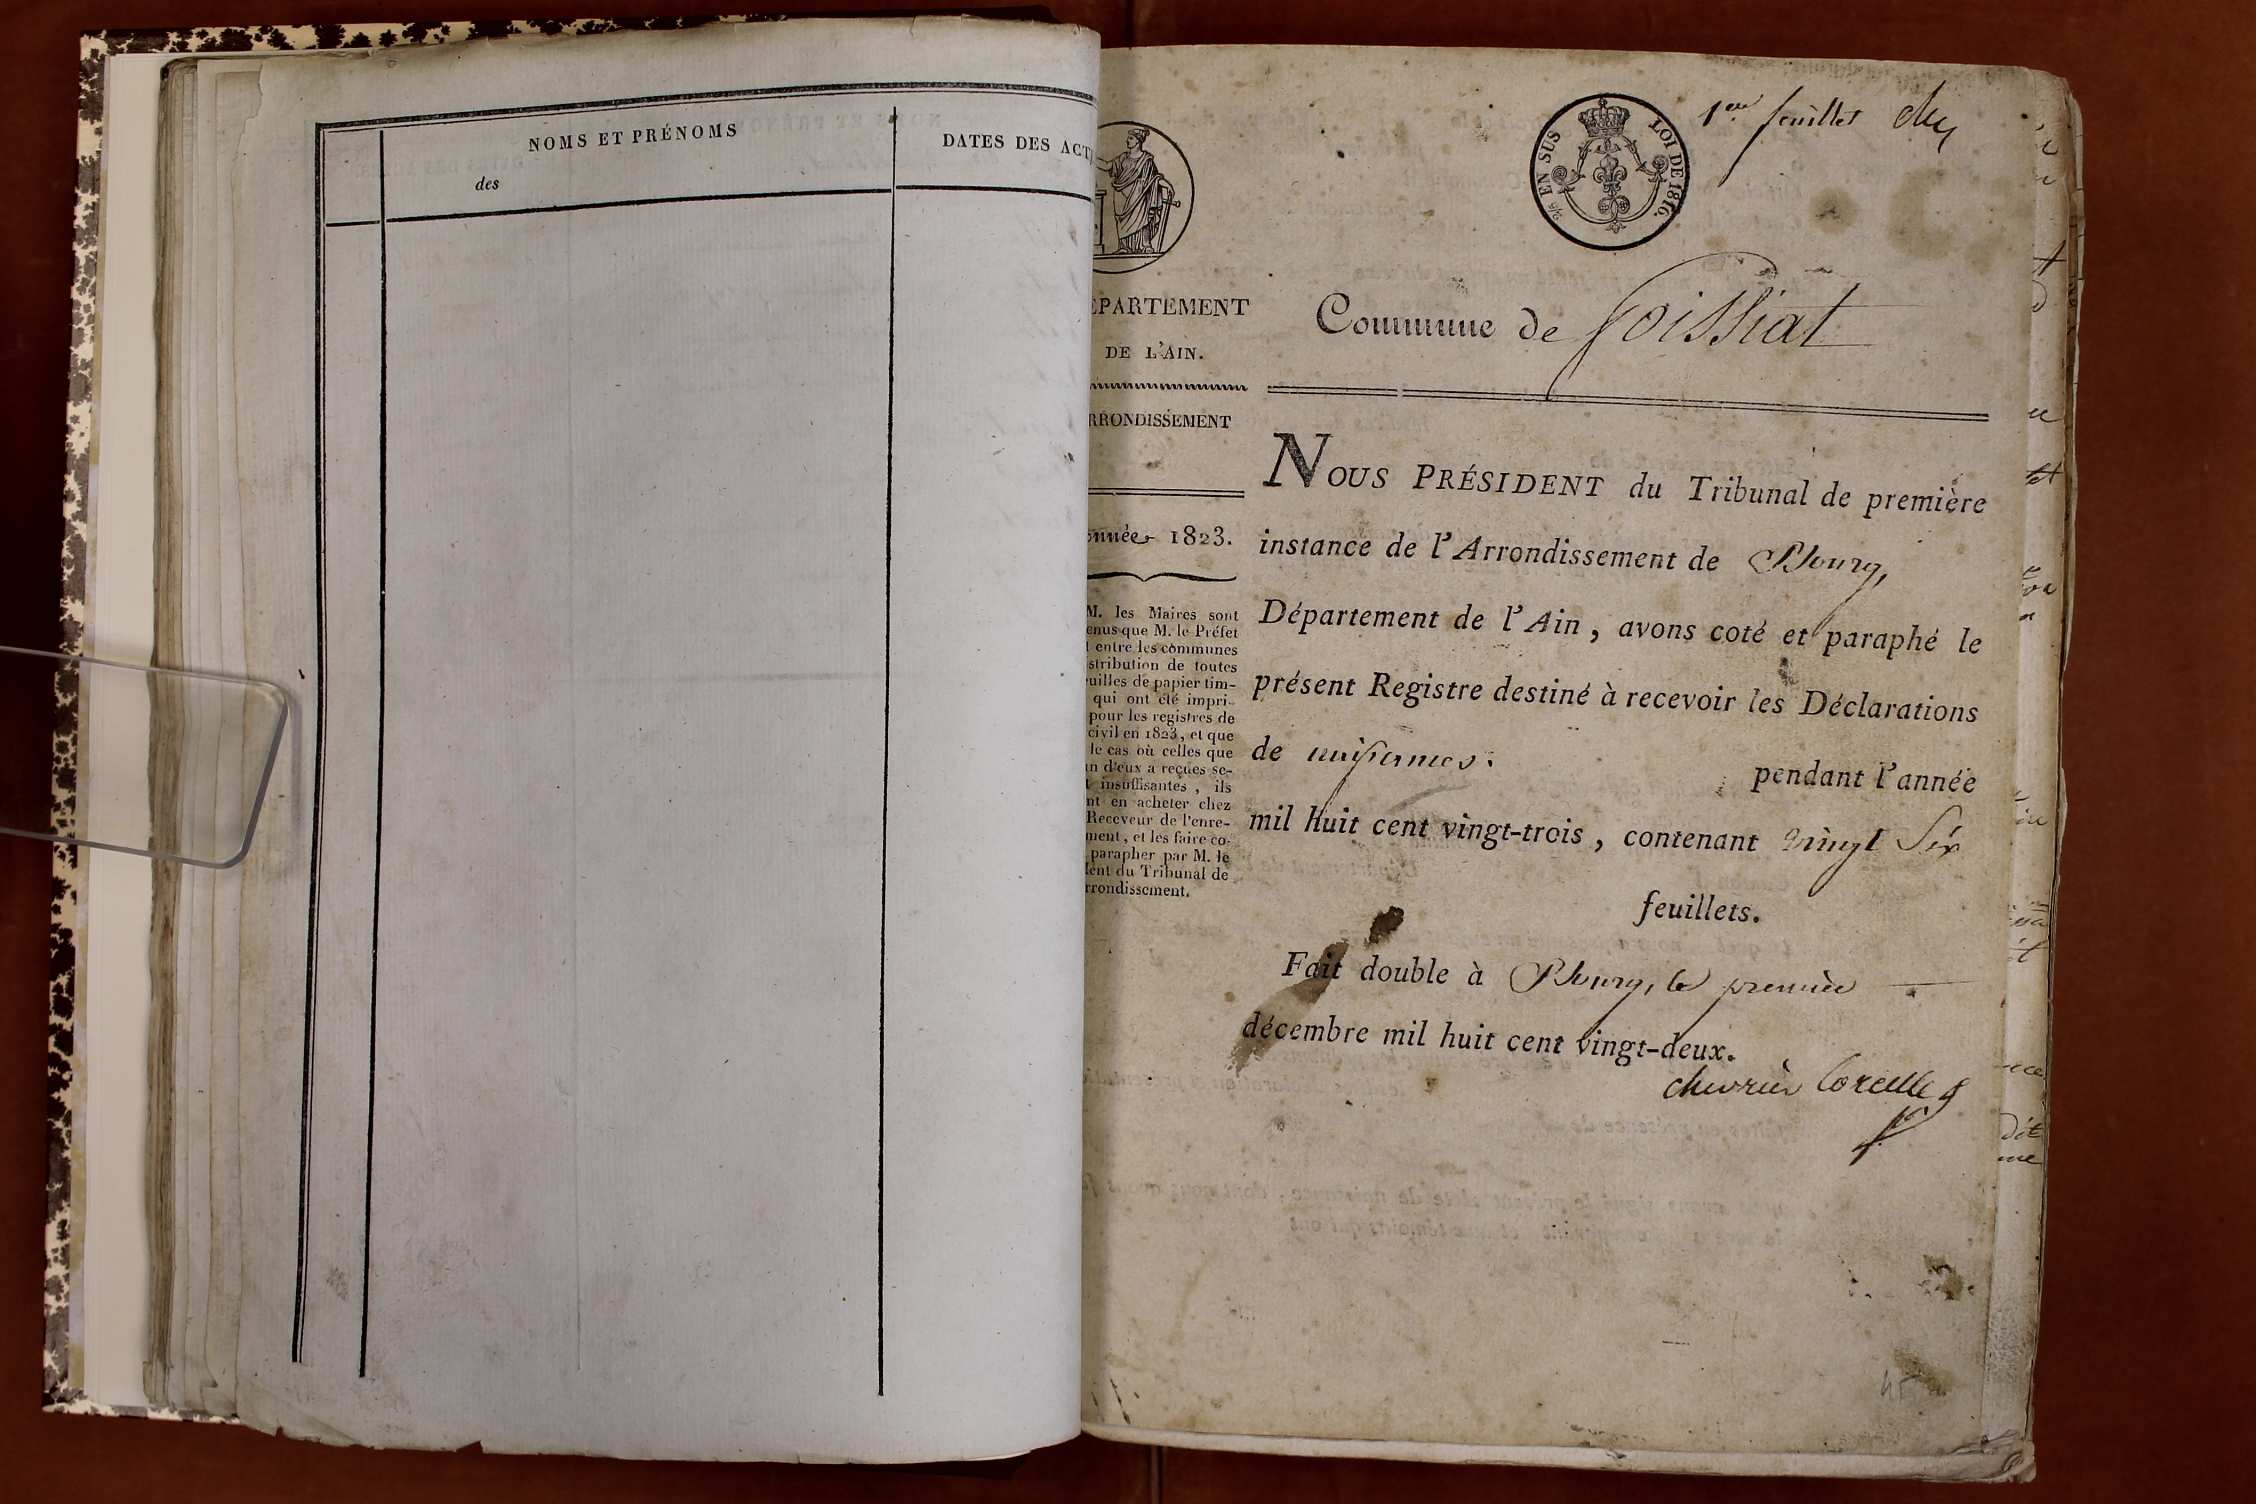 NOMS ET PRÉNOMS
des
DATES DES ACT
EN SUS
LOI DE 1816.
1er feuillet
ÉPARTEMENT
DE L'AIN.
RRONDISSEMENT
nnée 1823.
M. les Maires sont
enus que M. le Préfet
t entre les communes
stribution de toutes
uilles de papier tim-
qui ont été impri-
pour les registres de
civil en 1823, et que
le cas où celles que
un d'eux a reçues se-
t insuffisantes, ils
nt en acheter chez
Receveur de l'enre-
ment, et les faire co-
parapher par M. le
dent du Tribunal de
rrondissement.
Commune de Foissiat
NOUS PRÉSIDENT du Tribunal de première
instance de l'Arrondissement de Bourg,
Département de l'Ain, avons coté et paraphé le
présent Registre destiné à recevoir les Déclarations
de naissances.
pendant l'année
mil huit cent vingt-trois, contenant vingt six
feuillets.
Fait double à Bourg, le premier
décembre mil huit cent vingt-deux.
chevrier Corcelles